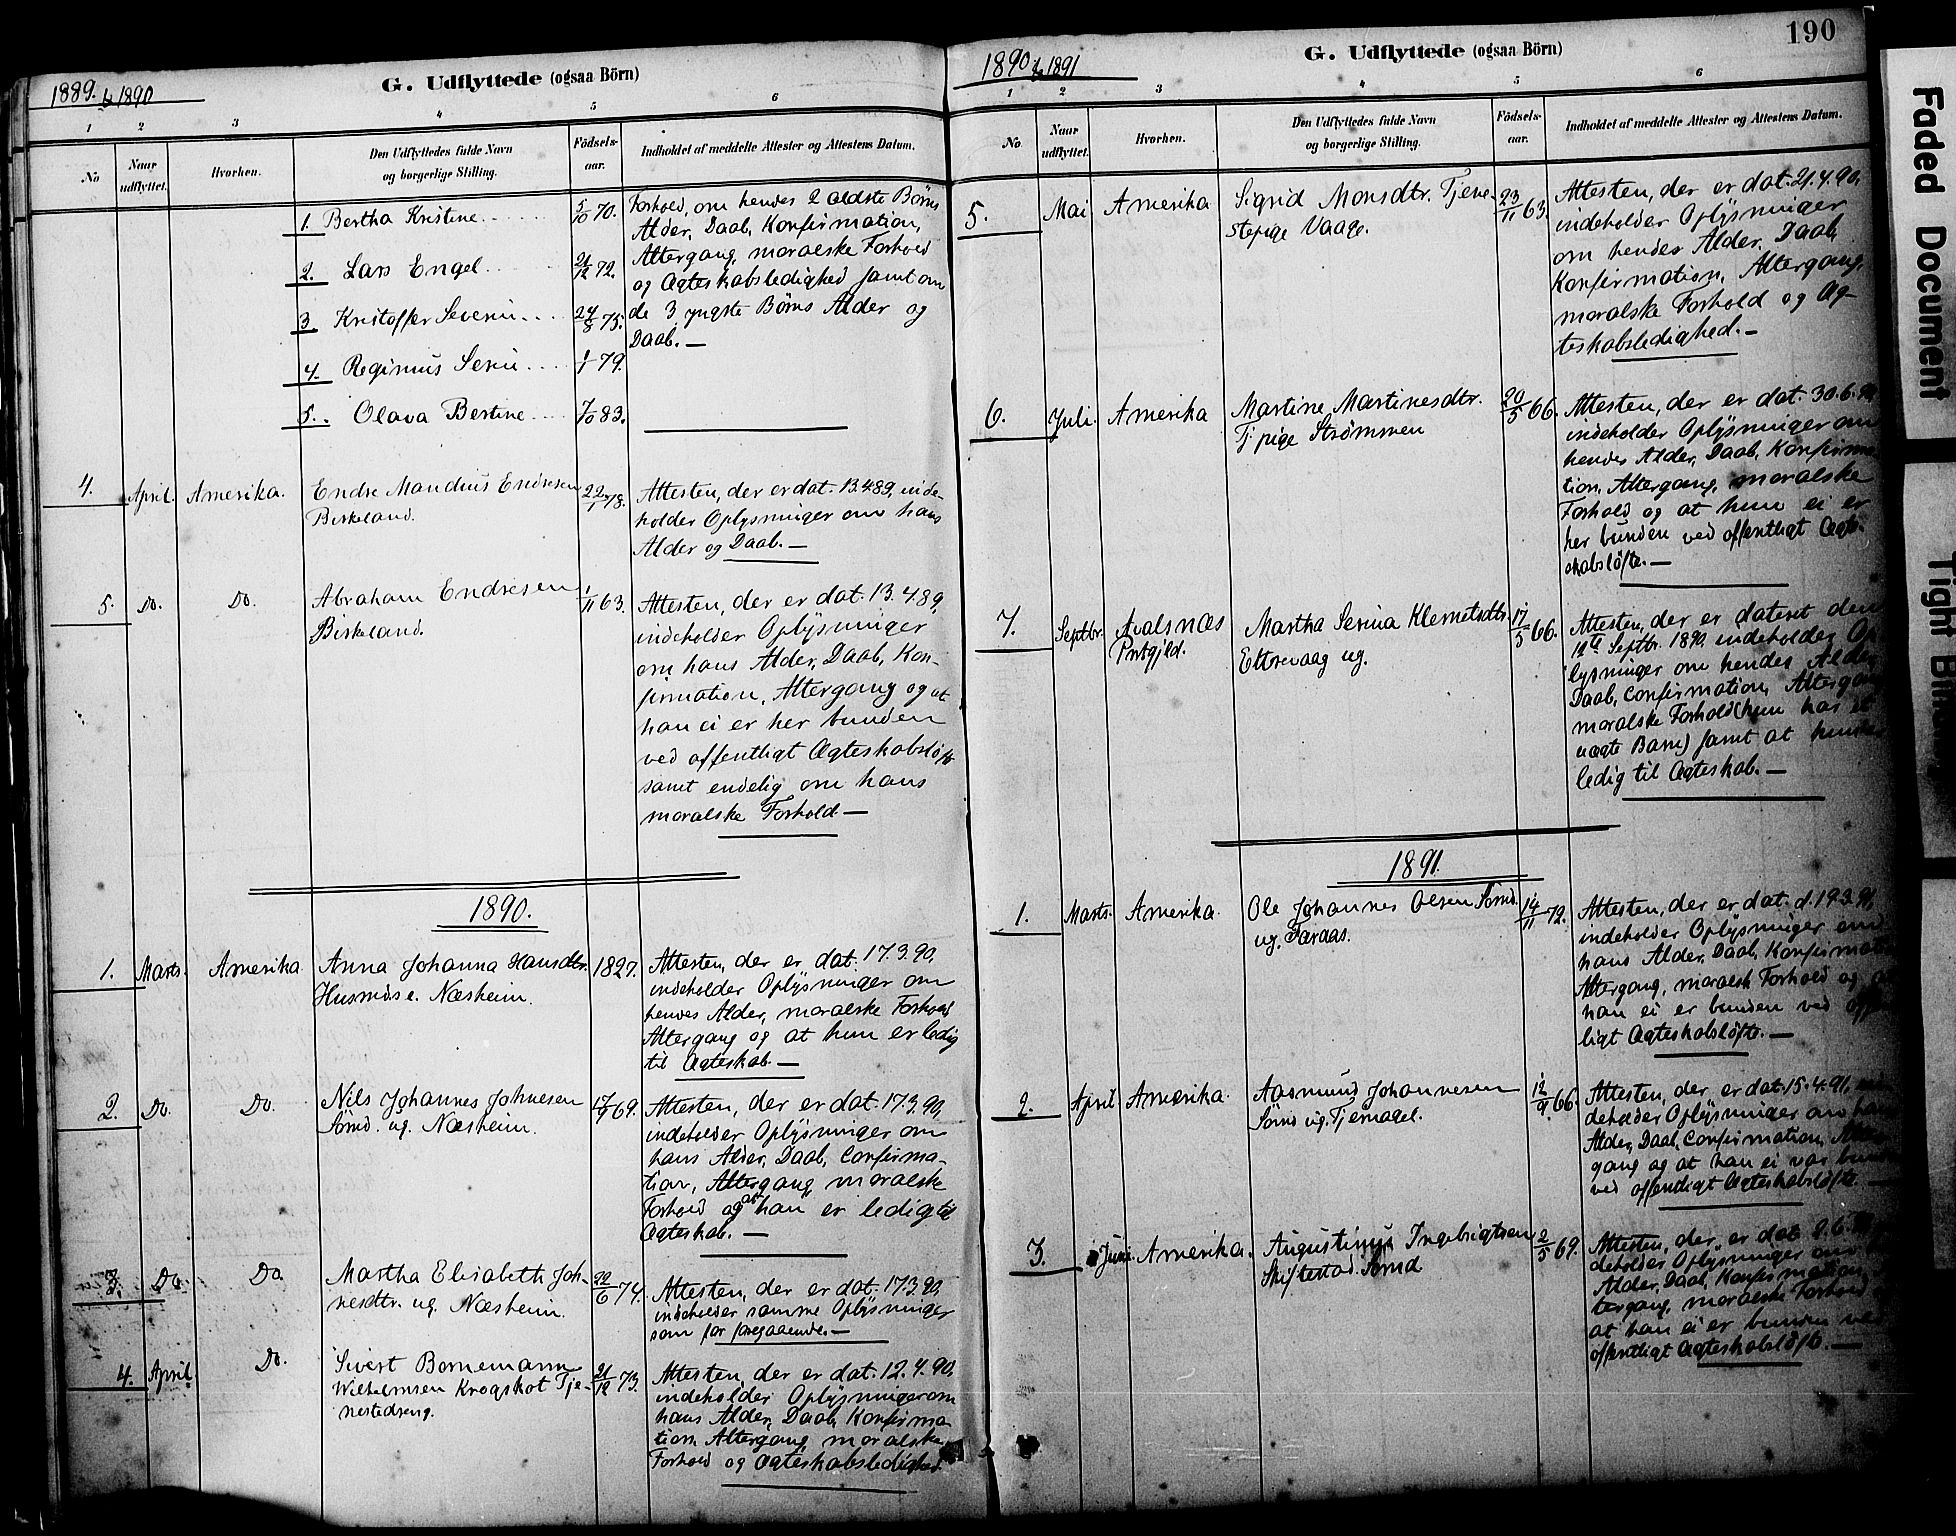 1889. & 1890
G. Udflyttede (ogsaa Börn)
1 2 3 4 5 6
No
Naar udflyttet.
Hvorhen.
Den Udflyttedes fulde Navn
og borgerlige Stilling.
Födsels-
aar.
Indholdet af meddelte Attester og Attestens Datum.
1. Bertha Kristine 5/10 70.
2. Lars Engel 21/12 72.
3 Kristoffer Severin 24/8 75.
4. Regimus Serin 79.
5. Olava Bertine 7/10 83.
Forhold, om hendes 2 ældste Børns
Alder, Daab, Konfirmation,
Altergang, moralske Forhold
og Ægteskabsledighed samt om
de 3 yngste Børns Alder og
Daab. —
4. April. Amerika. Endre Mandius Endresen
Birkeland.
22/1 78.
Attesten, der er dat. 13.4.89, inde-
holder Oplysninger om hans
Alder og Daab. —
5. Do. Do. Abraham Endresen
Birkeland.
1/11 63.
Attesten, der er dat. 13.4.89,
indeholder Oplysninger
om hans Alder, Daab, Kon-
firmation, Altergang og at
han ei er her bunden
ved offentligt Ægteskabsløfte
samt endelig om hans
moralske Forhold. —
1890.
1. Marts. Amerika Anna Johanna Hansdtr.
Husmds e. Næsheim.
1827.
Attesten, der er dat. 17.3.90,
indeholder Oplysninger om
hendes Alder, moralske Forhold,
Altergang og at hun er ledig
til Ægteskab. —
2. Do. Do. Nils Johannes Johnesen
Sømd. ug. Næsheim.
17/7 69.
Attesten, der er dat. 17.3.90,
indeholder Oplysninger om
hans Alder, Daab, Confirma-
tion, Altergang moralske
Forhold og at han er ledig til
Ægteskab. —
3. Do Do. Martha Elisabeth Joh-
nesdtr. ug. Næsheim.
22/6 74.
Attesten, der er dat. 17.3.90,
indeholder samme Oplysninger
som for foregaaende. —
4. April Do. Sivert Bornemann
Wilhelmsen Krogskot Tje-
nestedreng.
21/12 73.
Attesten, der er dat. 12.4.90,
indeholder Oplysninger om
hans Alder, Daab, Konfirma
tion, Altergang, moralske
Forhold og Ægteskabsledighed.
1890 & 1891
G. Udflyttede (ogsaa Börn)
190
1 2 3 4 5 6
No
Naar
udflyttet.
Hvorhen.
Den Udflyttedes fulde Navn
og borgerlige Stilling.
Födsels-
aar.
Indholdet af meddelte Attester og Attestens Datum.
5. Mai Amerika Sigrid Monsdtr. Tjene-
stepige Vaage.
23/11 63.
Attesten, der er dat. 21.4.90,
indeholder Oplysninger
om hendes Alder, Daab,
Konfirmation, Altergang,
moralske Forhold og Æg-
teskabsledighed. —
6. Juli. Amerika Martine Martinesdtr.
Tj pige Strømmen
20/5 66.
Attesten, der er dat. 30.6.90
indeholder Oplysninger om
hendes Alder, Daab, Konfirma
tion, Altergang, moralske
Forhold og at hun ei er
her bunden ved offentligt Ægte-
skabsløfte. —
7. Septbr. Avalsnæs
Prstgjeld.
Martha Serina Klemetsdtr.
Eltrevaag ug.
17/5 66.
Attesten, der er dateret den
12te Septbr. 1890, indeholder Op
lysninger om hendes Alder,
Daab, Confirmation, Altergang
moralske Forhold (hun har et
uægte Barn) samt at hun er
ledig til Ægteskab. —
1891.
1. Marts. Amerika. Ole Johannes Olsen Sømd.
ug. Færaas.
14/11 72.
Attesten, der er dat. d. 19.3.91,
indeholder Oplysninger om
hans Alder, Daab, Konfirmati
Altergang, moralsk Forhold og at
han ei er bunden ved offent
ligt Ægteskabsløfte. —
2. April Amerika. Aasmund Johannesen
Sømd ug. Tjernagel.
12/9 66.
Attesten, der er dat. 15.4.91, in
deholder Oplysninger om hans
Alder, Daab, Confirmation, Alter
gang og at han ei var bunden
ved offentligt Ægteskabsløfte. —
3. Juni. Amerika. Augustinus Ingebrigtsen
Skiftestad Sømd
2/5 69.
Attesten, der er dat. 9.6.
deholder Oplysninger om
Alder, Daab, Konfirmation,
tergang, moralske Forhold
at han ei er bunden ved
offentligt Ægteskabsløfte. —
Faded Document
Tight Bin